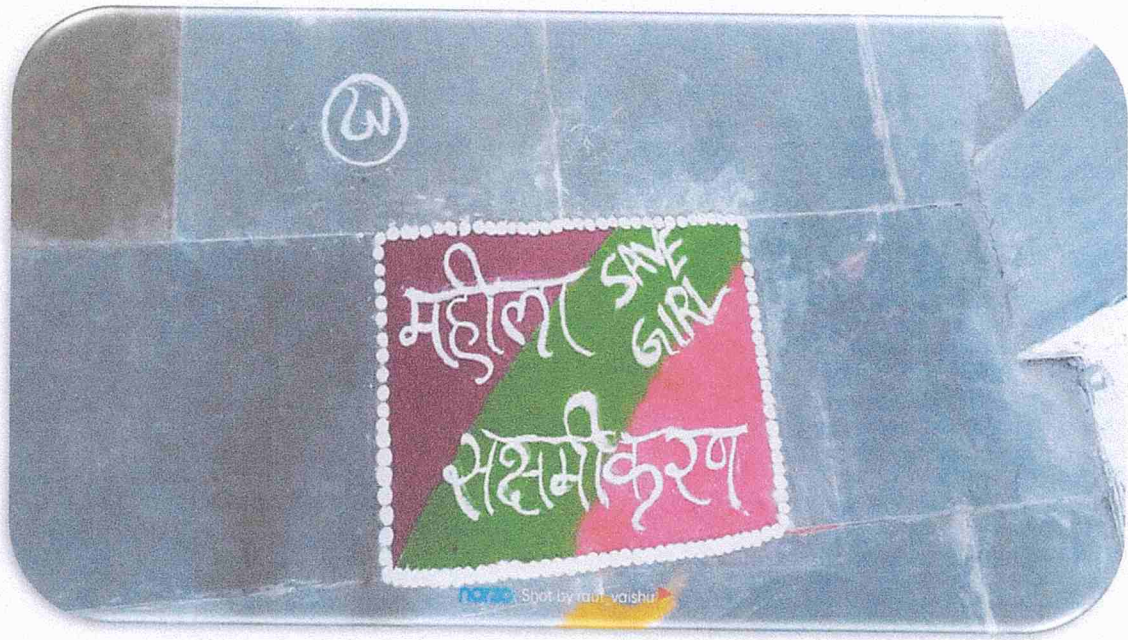 महीला
SAVE
GIRL
सक्षमीकरण
narzo Shot by raut_vaishu